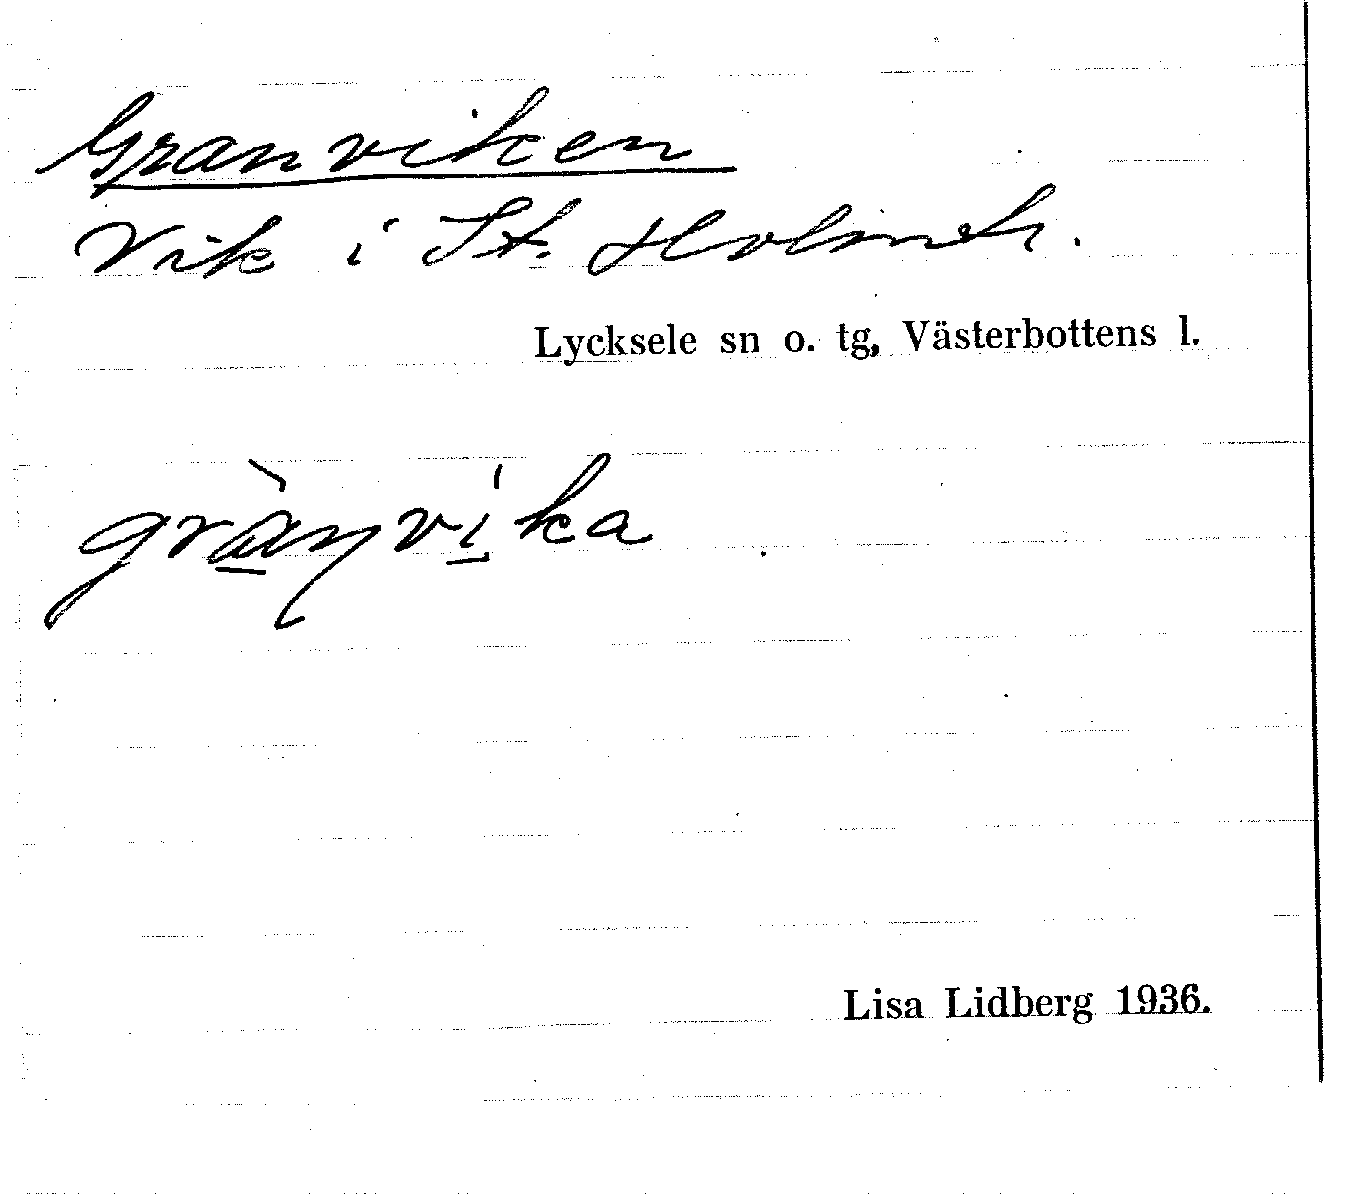 Granviken
Vik i St. Holmtr.
Lycksele sn o. tg, Västerbottens l.
gràṉvi̱ka
Lisa Lidberg 1936.